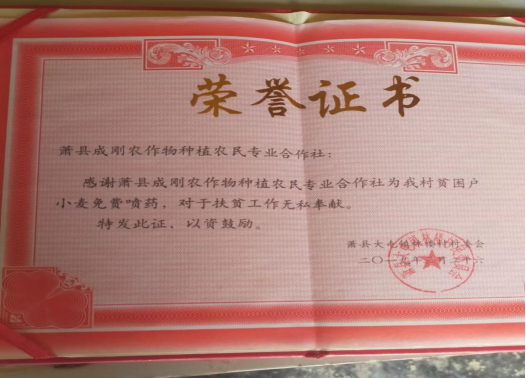 荣誉证书
萧县成刚农作物种植农民专业合作社:
感谢萧县成刚农作物种植农民专业合作社为我村贫困户
小麦免费喷药,对于扶贫工作无私奉献。
特发此证,以资鼓励。
萧县大屯镇林楼村村委会
二〇一五年 月二十六